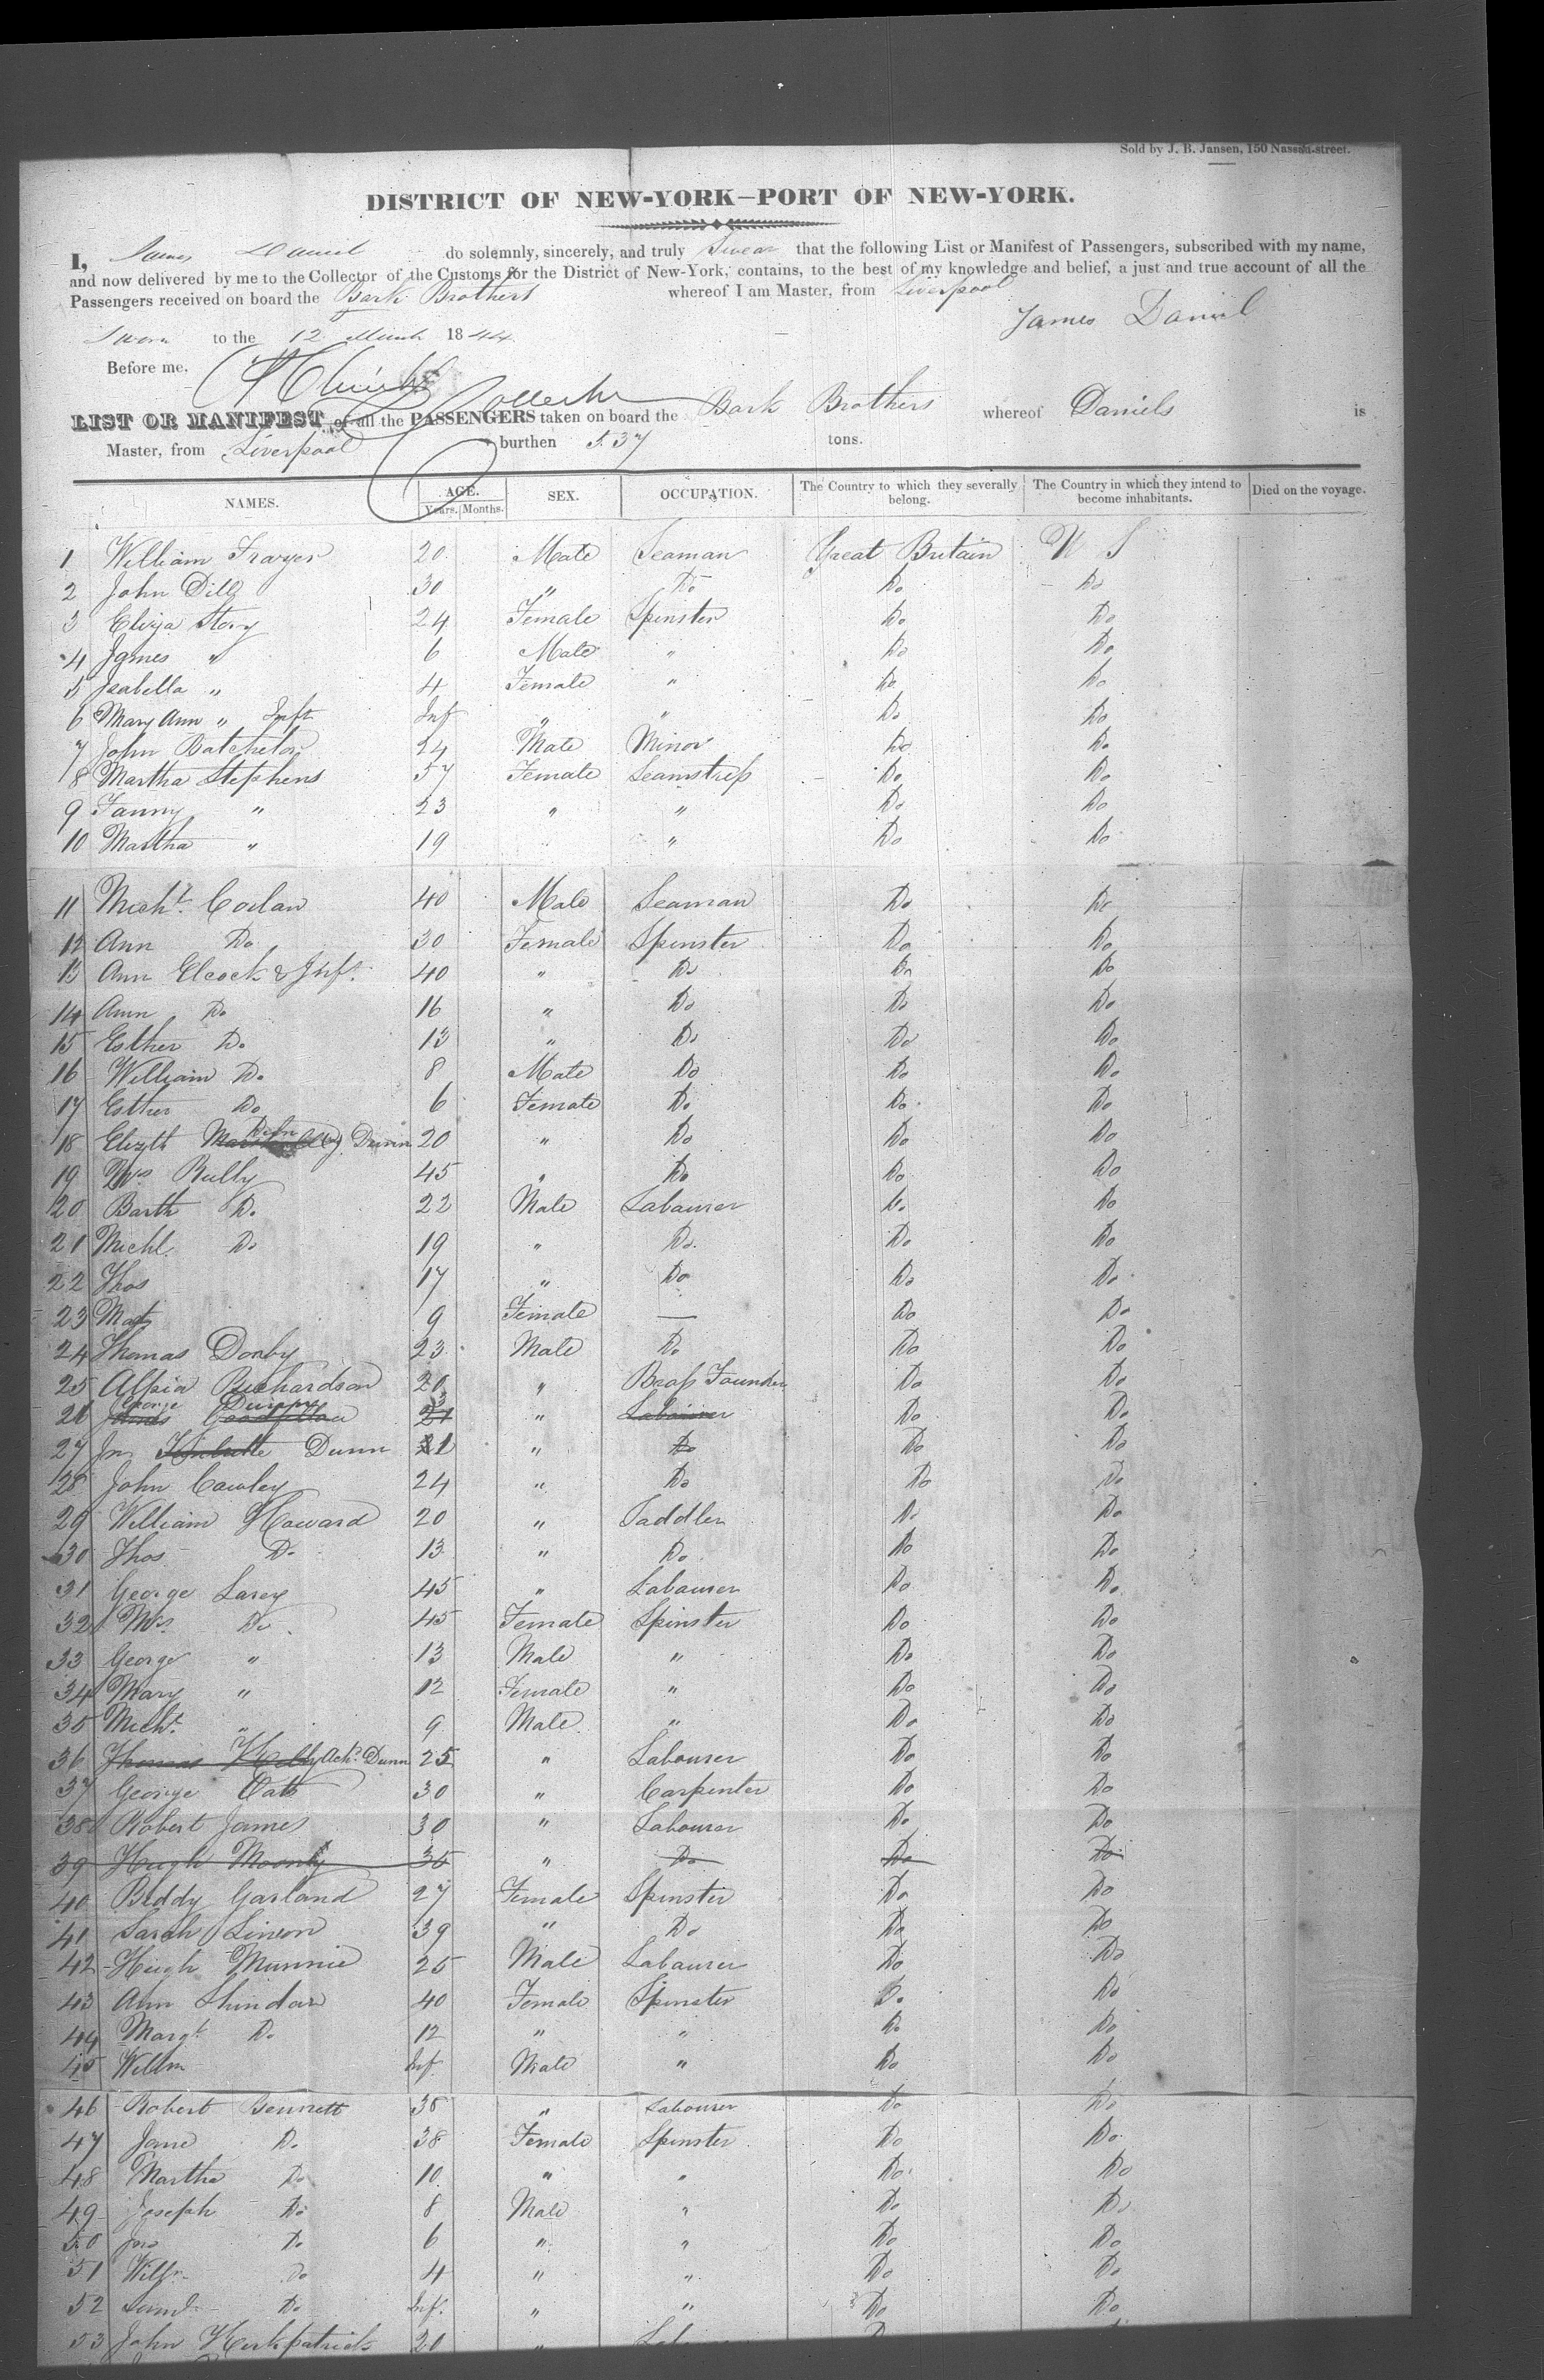 Sold by J. B. Jansen, 150 Nassau-street.
DISTRICT OF NEW-YORK—PORT OF NEW-YORK.
I, James Daniel do solemnly, sincerely, and truly Swear that the following List or Manifest of Passengers, subscribed with my name,
and now delivered by me to the Collector of the Customs for the District of New-York, contains, to the best of my knowledge and belief, a just and true account of all the
Passengers received on board the Bark Brothers whereof I am Master, from Liverpool
James Daniel
Sworn to the 12 March 1844
Before me.
Collector
LIST OR MANIFEST of all the PASSENGERS taken on board the Bark Brothers whereof Daniels is
Master, from Liverpool burthen 537 tons.
NAMES. AGE. Years. Months. SEX. OCCUPATION. The Country to which they severally belong. The Country in which they intend to become inhabitants. Died on the voyage.
1 William Frayer 20 Male Seaman Great Britain U S
2 John Dill 30 " Do Do Do
3 Eliza Story 24 Female Spinster Do Do
4 James " 6 Male " Do Do
5 Isabella " 4 Female " Do Do
6 Mary Ann " Inft Inf " " Do Do
7 John Batchelor 24 Male Minor Do Do
8 Martha Stephens 57 Female Seamstress Do Do
9 Fanny " 23 " " Do Do
10 Martha " 19 " Do Do
11 Michl. 40 Male Seaman Do Do
12 Ann Do 30 Female Spinster Do Do
13 Ann Elcock & Inf. 40 " Do Do Do
14 Ann Do 16 " Do Do Do
15 Esther Do 13 " Do Do Do
16 William Do 8 Male Do Do Do
17 Esther Do 6 Female Do Do Do
18 Elizth Dunn 20 " Do Do Do
19 Mrs Rully 45 " Do Do Do
20 Barth Do 22 Male Labourer Do Do
21 Michl. Do 19 " Do Do Do
22 Thos 17 " Do Do Do
23 9 Female — Do Do
24 Thomas Donby 23 Male Do Do Do
25 Richardson 20 " Brass Founder Do Do
26 George James Goodfellow 21 " Labourer Do Do
27 Jno Dunn 21 " Do Do Do
28 John Cawley 24 " Do Do Do
29 William Howard 20 " Saddler Do Do
30 Thos Do 13 " Do Do Do
31 George Larey 45 " Labourer Do Do
32 Mrs. Do 45 Female Spinster Do Do
33 George " 13 Male " Do Do
34 Mary " 12 Female " Do Do
35 Michl. " 9 Male " Do Do
36 Thomas Kelly Dunn 25 " Labourer Do Do
37 George Oats 30 " Carpenter Do Do
38 Robert James 30 " Labourer Do Do
39 Hugh Moony 35 " Do Do Do
40 Biddy Garland 27 Female Spinster Do Do
41 Sarah Linson 39 " Do Do Do
42 Hugh Munnie 25 Male Labourer Do Do
43 Ann 40 Female Spinster Do Do
44 Margt Do 12 " " Do Do
45 Willm Inf. Male " Do Do
46 Robert Bennett 38 " Labourer Do Do
47 Jane Do 38 Female Spinster Do Do
48 Martha Do 10 " " Do Do
49 Joseph Do 8 Male " Do Do
50 Jno Do 6 " " Do Do
51 Willm Do 4 " " Do Do
52 Saml Do Inf. " " Do Do
53 John Kirkpatrick 20 "